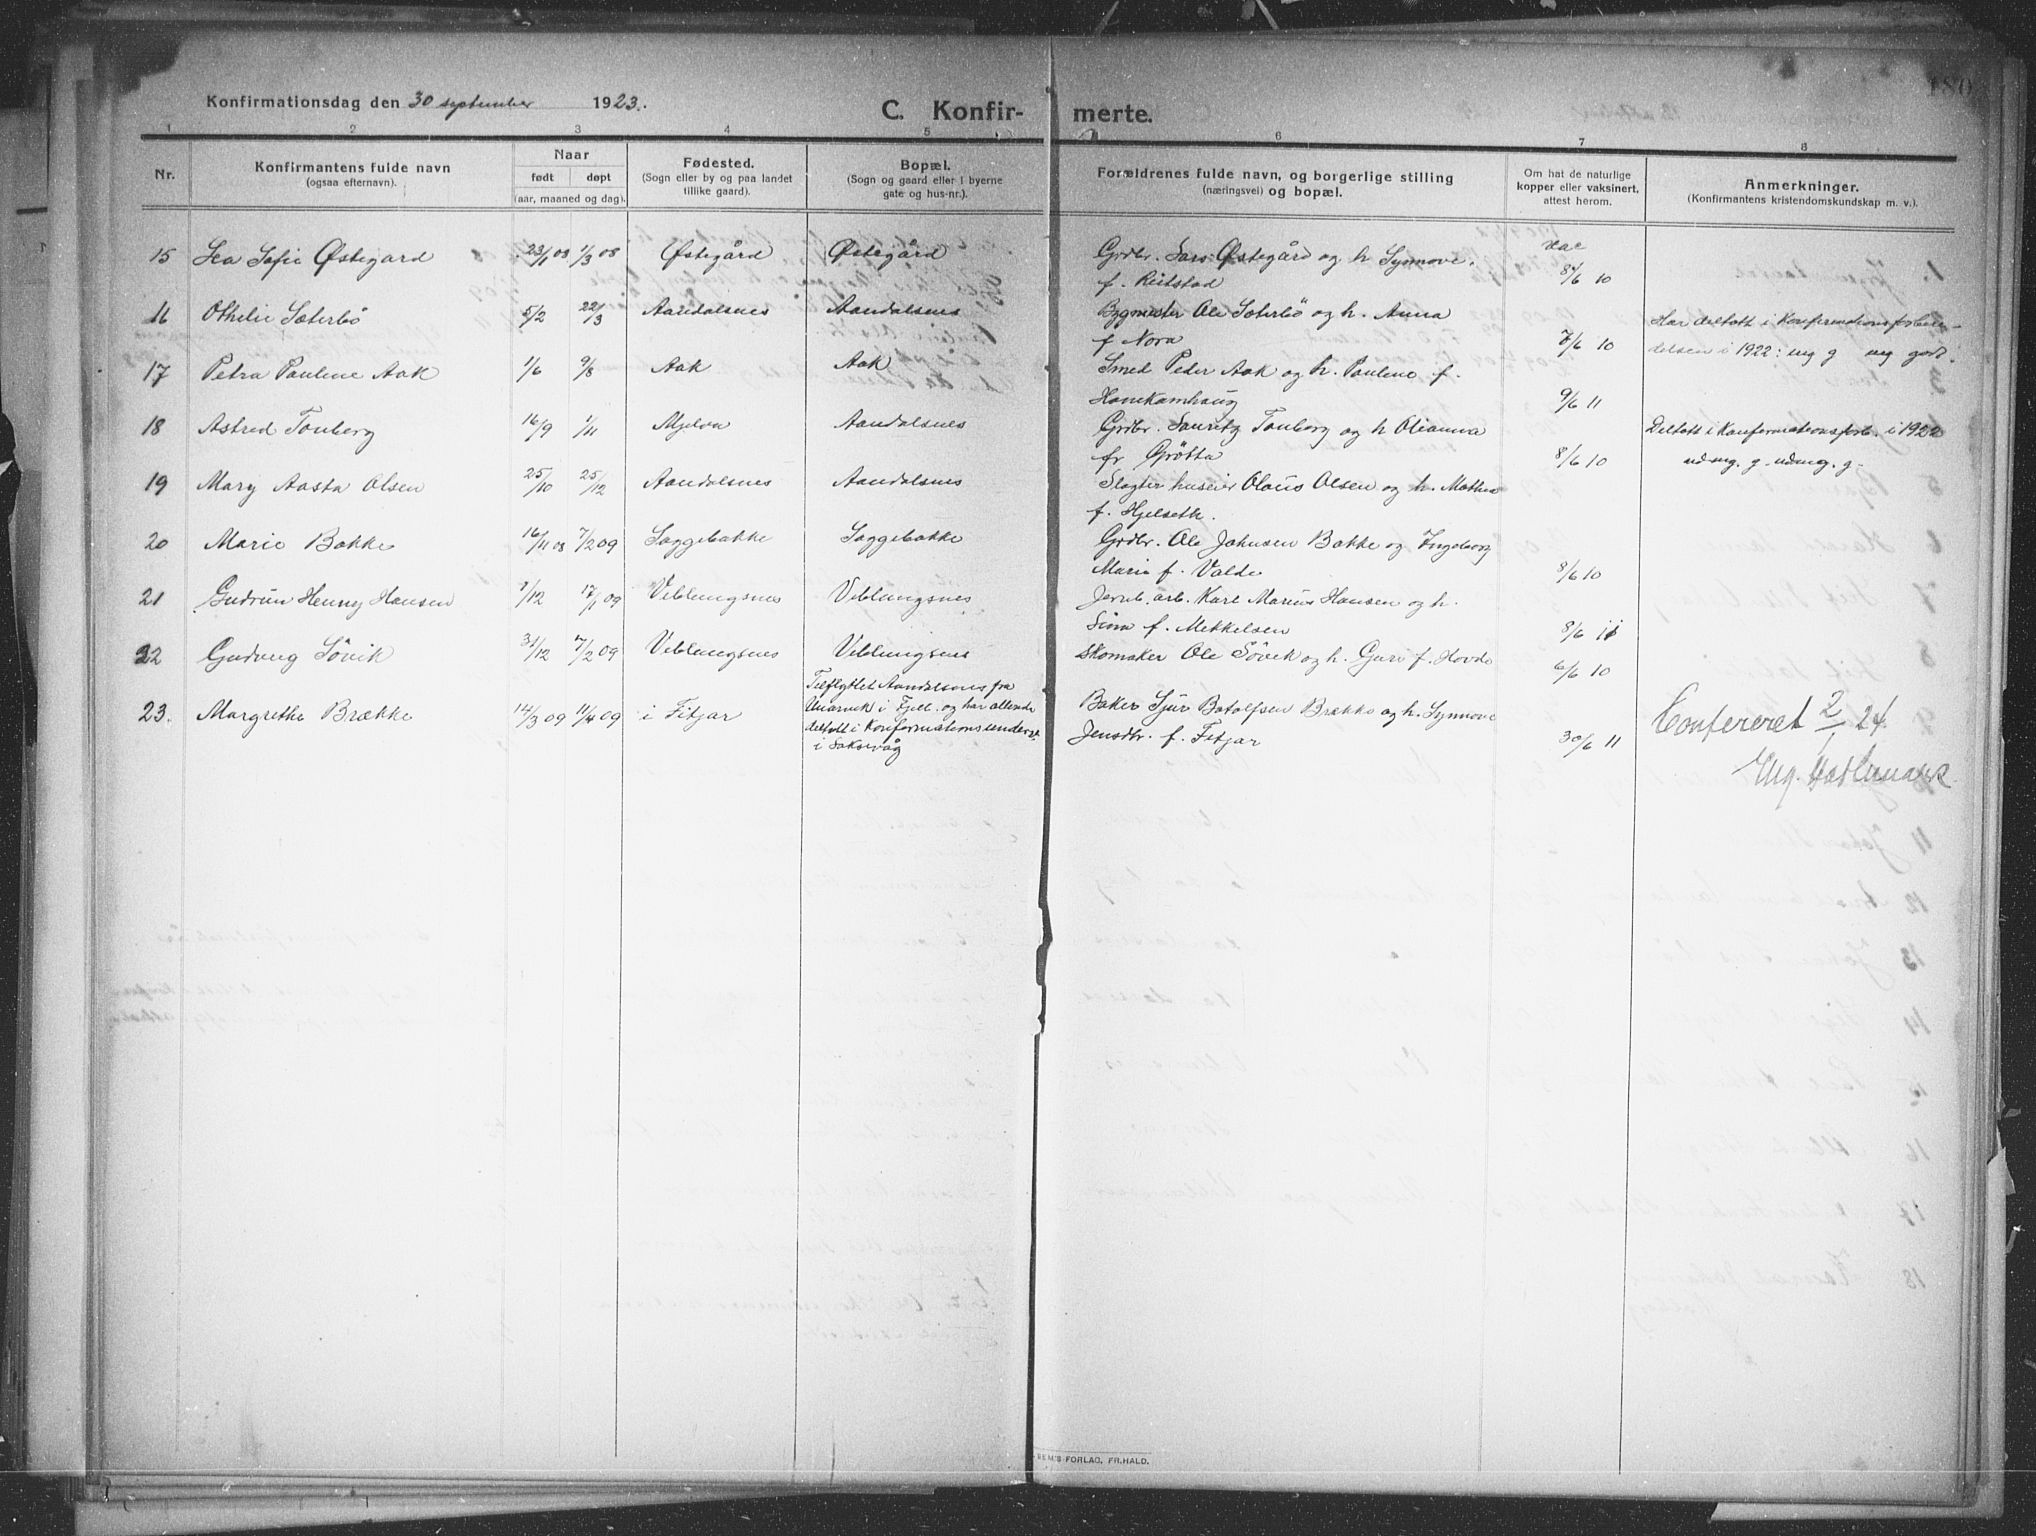 180
Konfirmationsdag den 30 september 1923.
C. Konfir- merte.
1 2 3 4 5 6 7 8
Nr.
Konfirmantens fulde navn
(ogsaa efternavn).
Naar
født døpt
(aar, maaned og dag).
Fødested.
(Sogn eller by og paa landet
tillike gaard).
Bopæl.
(Sogn og gaard eller i byerne
gate og hus-nr.).
Forældrenes fulde navn, og borgerlige stilling
(næringsvei) og bopæl.
Om hat de naturlige
kopper eller vaksinert,
attest herom.
Anmerkninger.
(Konfirmantens kristendomskundskap m. v.).
15 Lea Sofie Østegard 23/1 08 1/3 08 Østegård Østegård Grdbr. Lars Østegård og h Synnøve. vac
f. Reitstad 8/6 10
16 Othelie Sæterbö 5/2 22/3 Aandalsnes Aandalsnes Bygmester Ole Sæterbö og h. Anna Har deltatt i Konfirmationsforbere-
f Nora 7/6 10 delsen i 1922: mg g mg godt.
17 Petra Pauline Aak 1/6 9/8 Aak Aak Smed Peder Aak og h. Pauline f.
Hanekamhaug 9/6 11
18 Astred Tonberg 16/9 1/11 Mjelva Aandalsnes Grdbr. Lauritz Tonberg og h Olianna Deltatt i Konfirmationsforb. i 1922
f. Grötta 8/6 10 udmg. g. udmg. g.
19 Mary Aasta Olsen 25/10 25/12 Aandalsnes Aandalsnes Slagter huseier Olaus Olsen og h. Mathea
f. Hjelseth.
20 Marie Bakke 16/11 08 7/2 09 Saggebakke Saggebakke Grdbr. Ole Johnsen Bakke og Ingeborg
Marie f. Valde 8/6 10
21 Gudrun Henny Hansen 7/12 17/1 09 Veblungsnes Veblungsnes Jernb. arb. Karl Marius Hansen og h.
f. Mekkelsen 8/6 11
22 Gudveig Sövik 31/12 7/2 09 Veblungsnes Veblungsnes Skomaker Ole Sövik og h. Guri f. Hovde
6/6 10
23. Margrethe Brække 14/3 09 11/4 09 i Fitjar Tilflyttet Aandalsnes fra
i Fjell. og har allerede
deltatt i Konfirmationsunderv.
i
Baker Sjur Botolfsen Brække og h. Synnøve
Jensdtr. f. Fitjar 30/6 11
Confereret 2/1 24.
BEM'S FORLAG, FR.HALD.